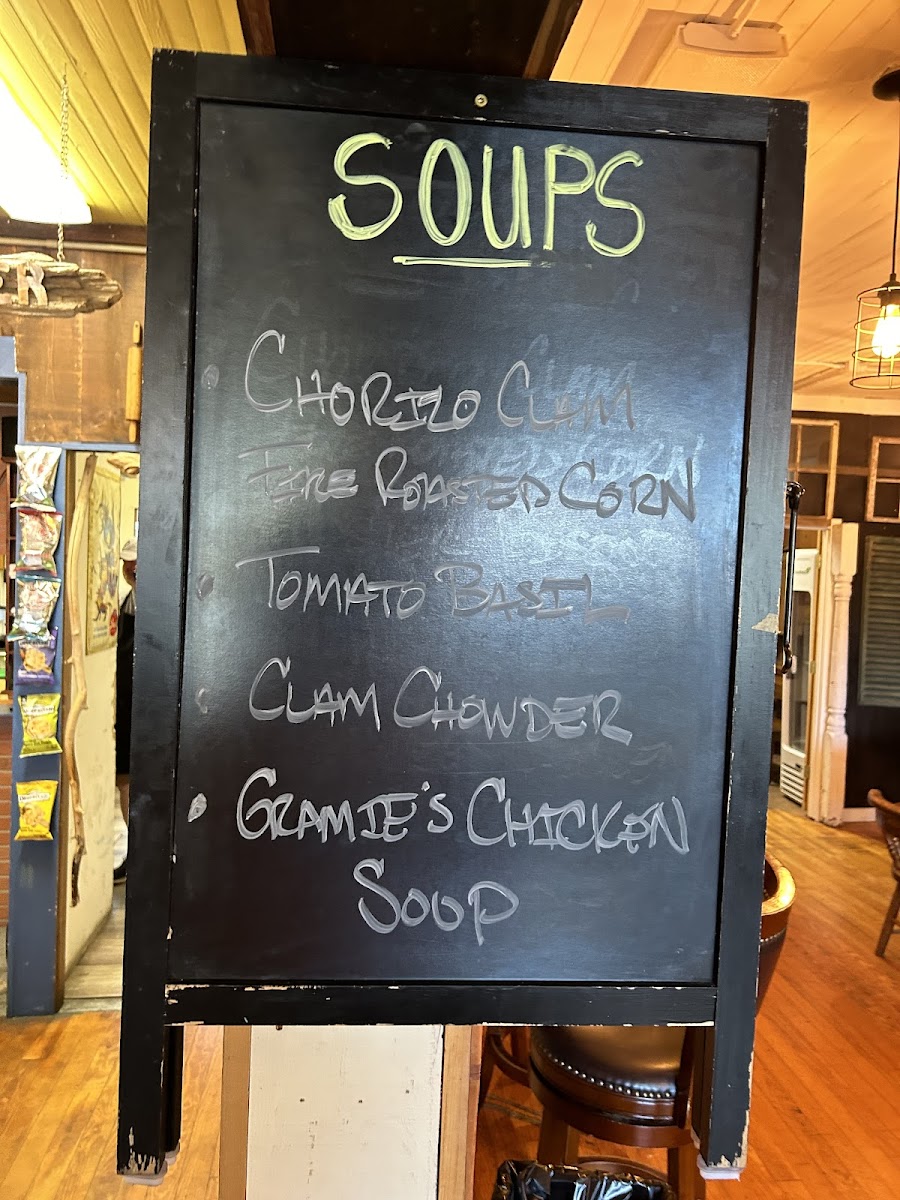 SOUPS
• CHORIZO CLAM
FIRE ROASTED CORN
• TOMATO BASIL
• CLAM CHOWDER
• GRAMIE'S CHICKEN
SOUP